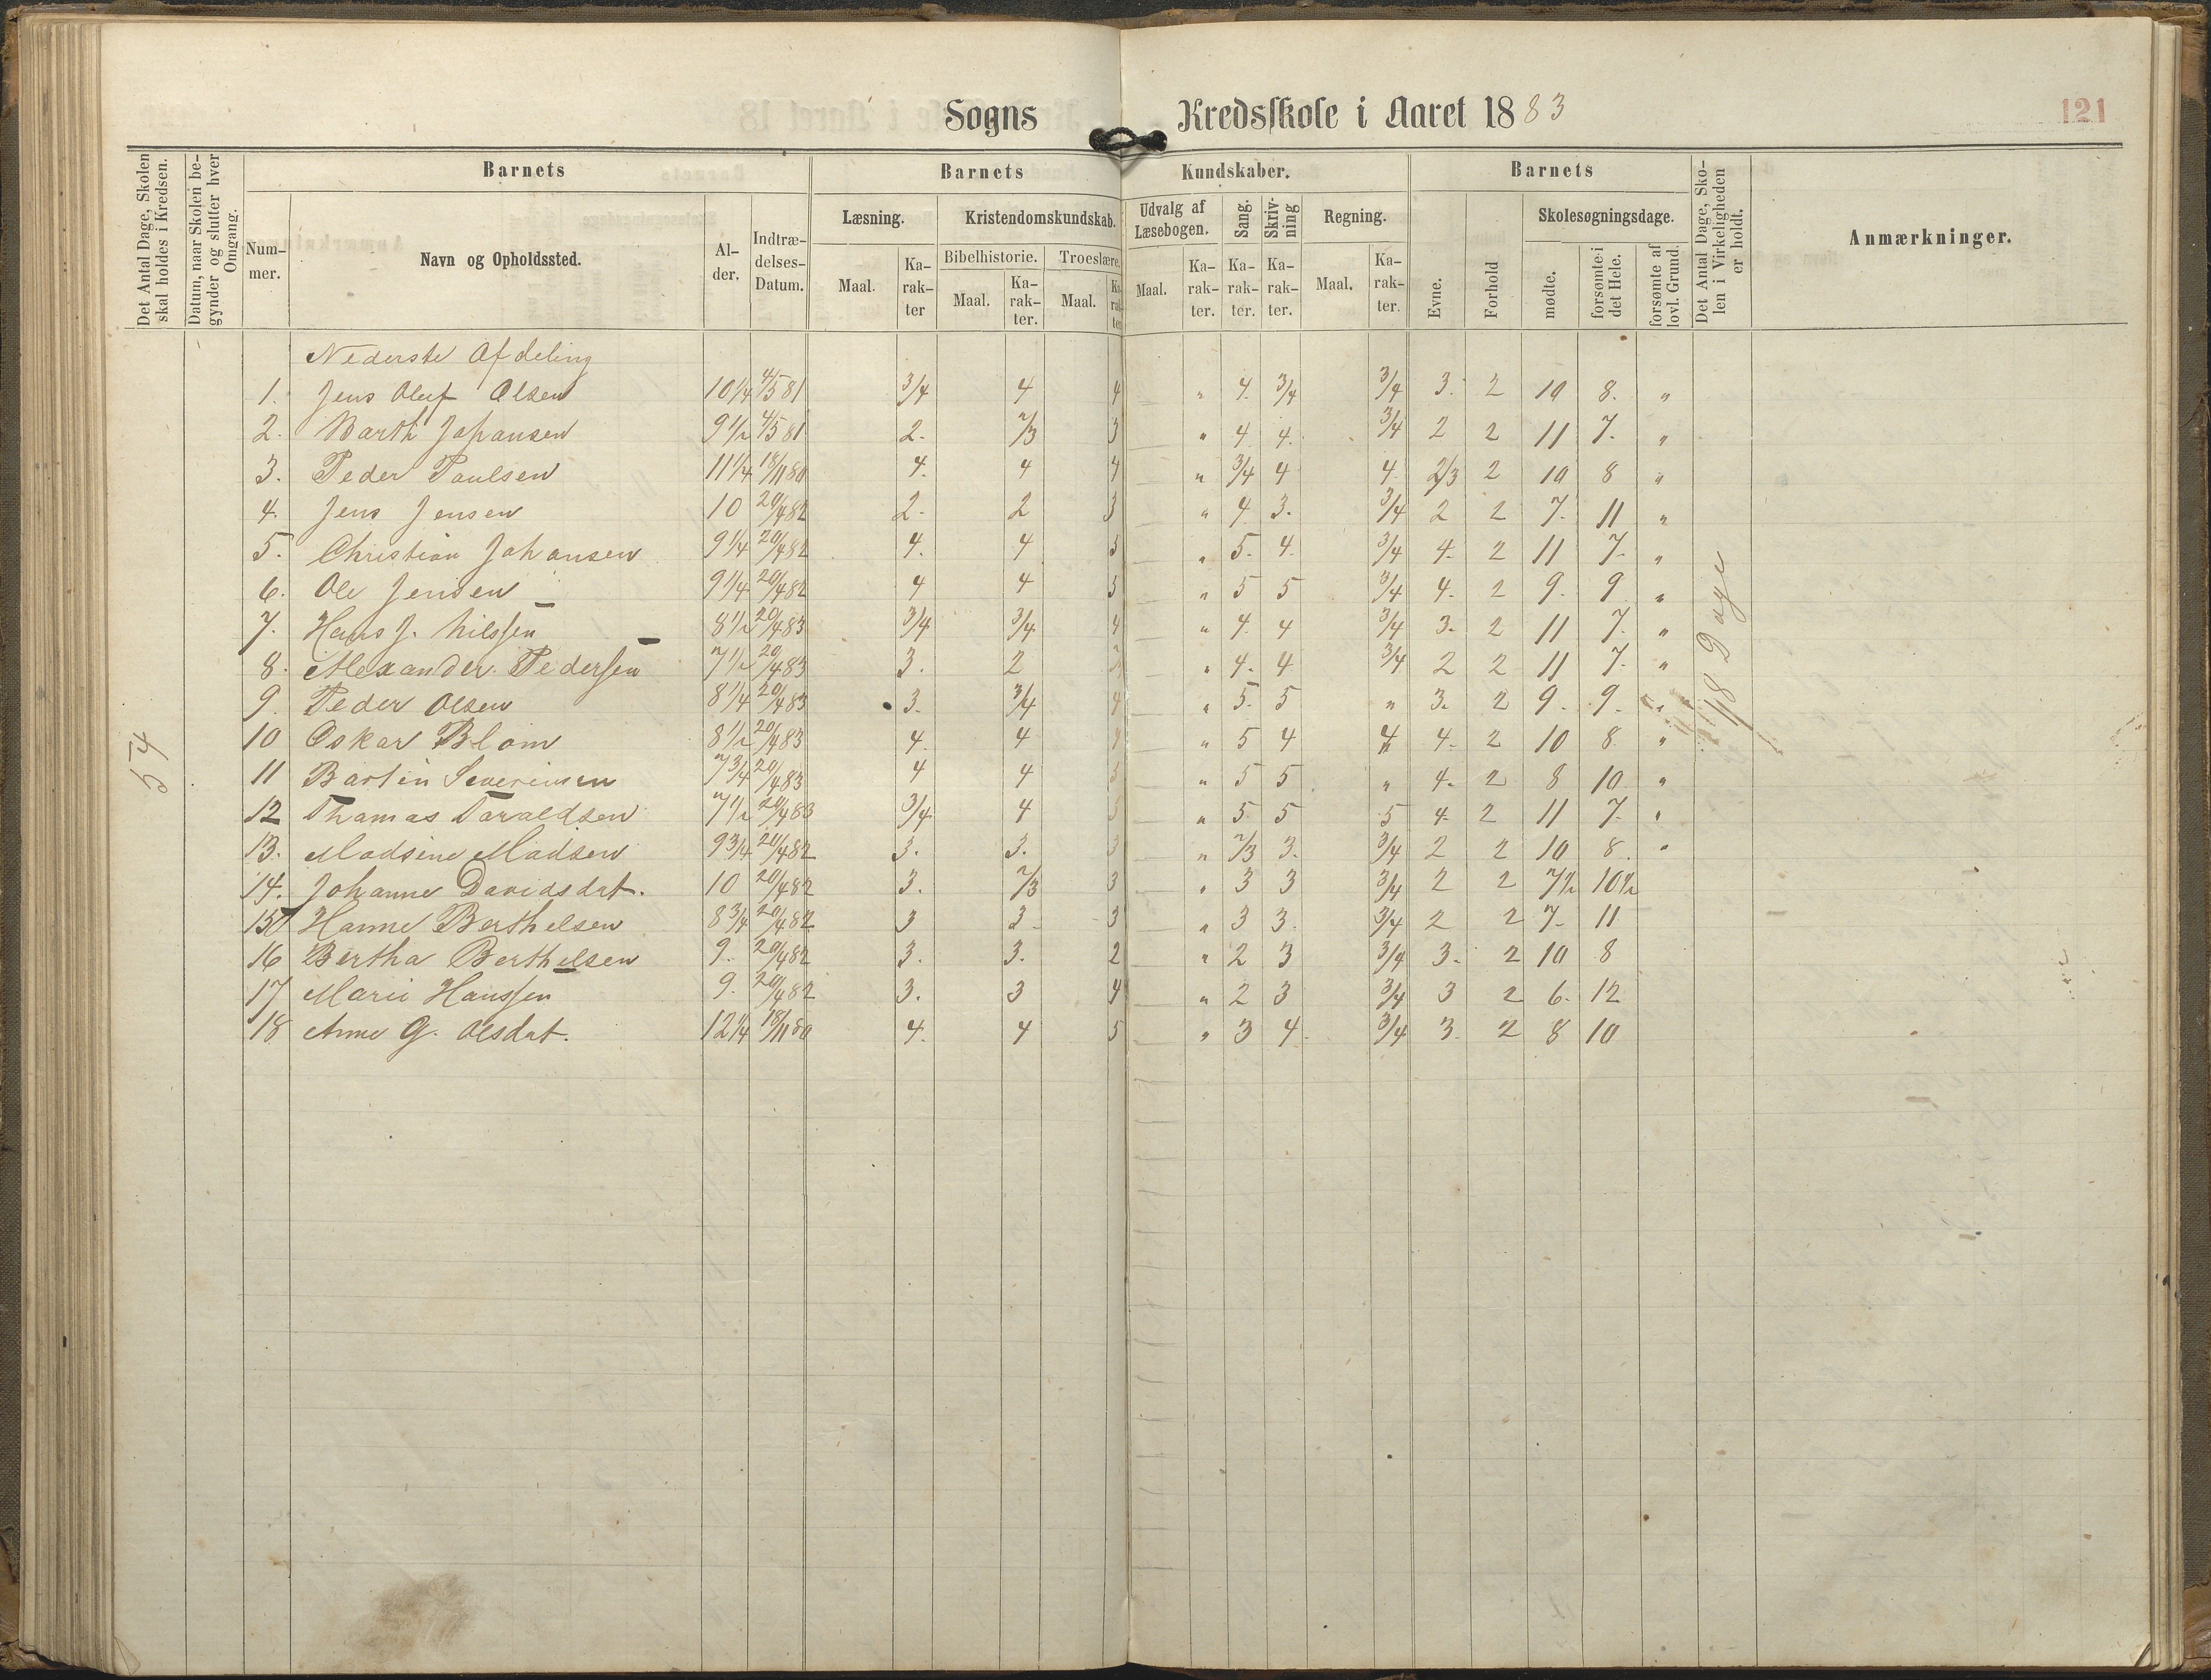 Sogns Kredsskole i Aaret 1883
121
Det Antal Dage, Skolen skal holdes i Kredsen.
Datum, naar Skolen begynder og slutter hver Omgang.
Barnets
Nummer.
Navn og Opholdssted.
Alder.
Indtrædelses-Datum.
Barnets Kundskaber.
Læsning.
Maal.
Karakter
Kristendomskundskab.
Bibelhistorie.
Maal.
Karakter.
Troeslære.
Maal.
Karakter
Udvalg af Læsebogen.
Maal.
Karakter.
Sang.
Karakter.
Skrivning
Karakter.
Regning.
Maal.
Karakter.
Barnets
Evne.
Forhold
Skolesøgningsdage.
mødte.
forsømte i det Hele.
forsømte af lovl. Grund.
Det Antal Dage, Skolen i Virkeligheden er holdt.
Anmærkninger.
54
18 Dage
Nederste Afdeling
1. Jens Oluf Olsen 10 1/4 4/5 81 3/4 4 4 " 4. 3/4 3/4 3. 2 10 8. "
2. Barth Johansen 9 1/2 4/5 81 2. 2/3 3 " 4 4. 3/4 2 2 11 7. "
3. Peder Paulsen 11 1/4 18/11 80 4. 4 4 " 3/4 4 4 2/3 2 10 8 "
4. Jens Jensen 10 20/4 82 2. 2 3 " 4 3. 3/4 2 2 7. 11 "
5. Christian Johansen 9 1/4 20/4 82 4. 4 5 " 5. 4. 3/4 4. 2 11 7. "
6. Ole Jensen 9 1/4 20/4 82 4 4 5 " 5 5 3/4 4. 2 9. 9 "
7. Hans J. Nilssen 8 1/2 20/4 83 3/4 3/4 4 " 4. 4 3/4 3. 2 11 7. "
8. Alexander Pederssen 7 1/2 20/4 83 3. 2 " 4. 4 3/4 2 2 11 7. "
9. Peder Olsen 8 1/4 20/4 83 3. 3/4 4 " 5. 5 " 3. 2 9. 9. "
10 Oskar Blom 8 1/2 20/4 83 4. 4 4 " 5 4 4 4. 2 10 8 "
11 Bartin Severinsen 7 3/4 20/4 83 4 4 5 " 5 5 " 4. 2 8 10 "
12 Thomas Taraldsen 7 1/2 20/4 83 3/4 4 5 " 5 5 5 4. 2 11 7. "
13. Madsine Madsen 9 3/4 20/4 82 3. 3. 3 " 2/3 3. 3/4 2 2 10 8. "
14. Johanne Davidsdat. 10 20/4 82 3. 2/3 3 " 3 3 3/4 2 2 7 1/2 10 1/2
15 Hanne Berthelsen 8 3/4 20/4 82 3 3. 3 " 3 3. 3/4 2 2 7. 11
16 Bertha Berthelsen 9. 20/4 82 3. 3. 2 " 2 3 3/4 3. 2 10 8
17 Marie Hanssen 9. 20/4 82 3. 3 4 " 2 3 3/4 3 2 6. 12
18 Anne G. Olsdat. 12 1/4 18/11 80 4. 4 5 " 3 4. 3/4 3. 2 8 10